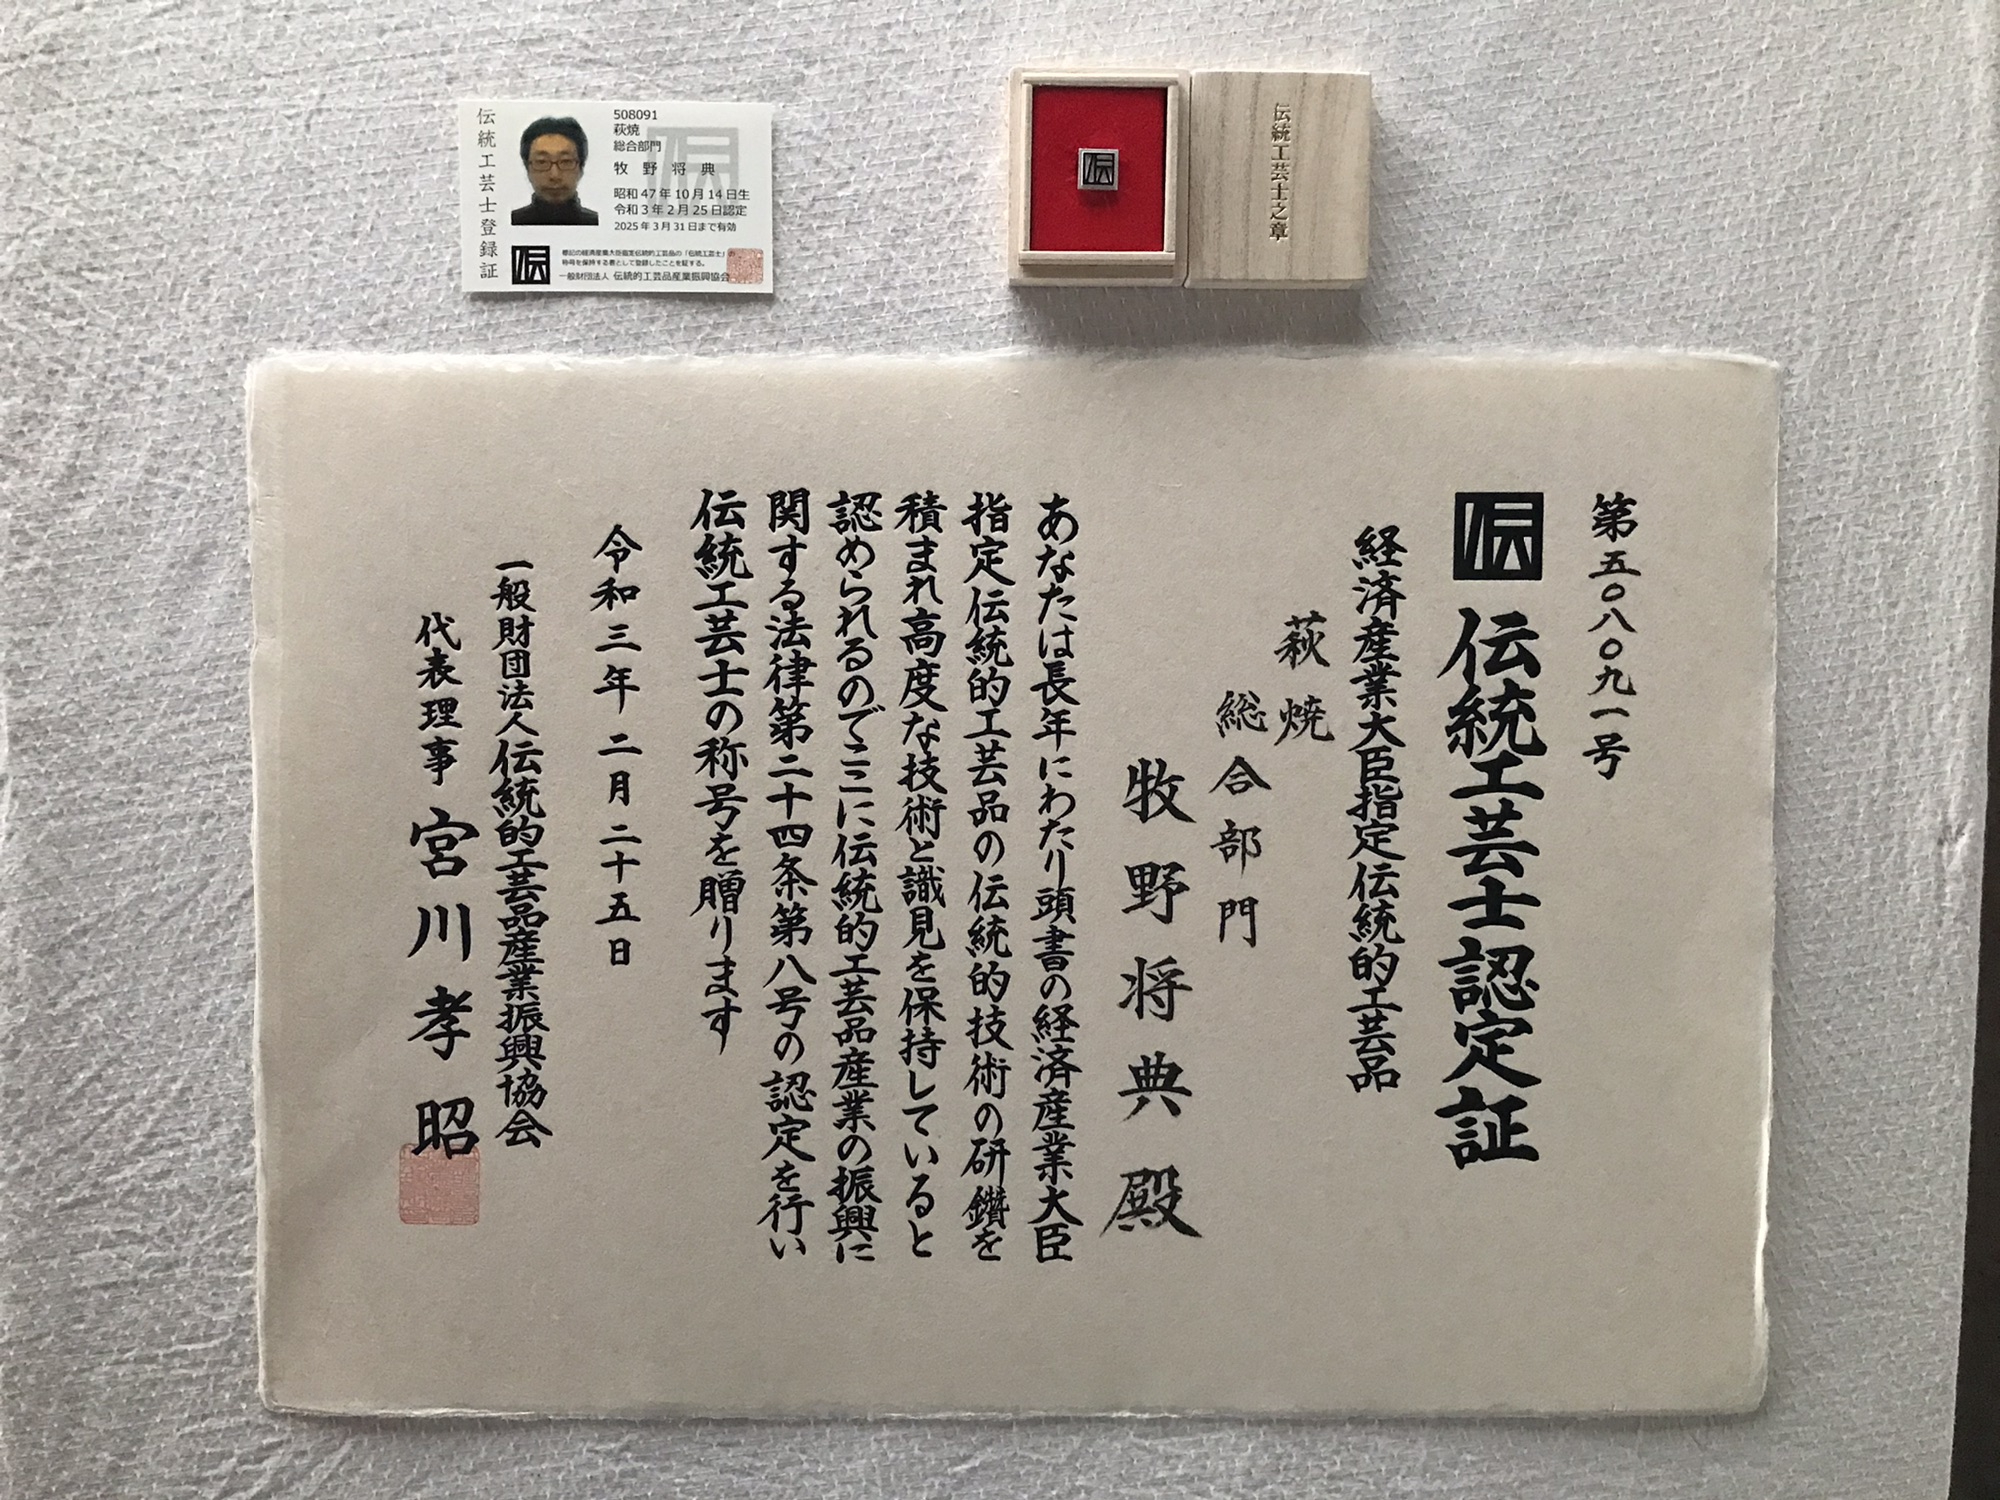 伝統工芸士登録証
508091
萩焼
総合部門
牧野将典
昭和47年10月14日生
令和3年2月25日認定
2025年3月31日まで有効
伝
標記の経済産業大臣指定伝統的工芸品の「伝統工芸士」の
称号を保持する者として登録したことを証する。
一般財団法人 伝統的工芸品産業振興協会
伝
伝統工芸士之章
第五〇八〇九一号
伝 伝統工芸士認定証
経済産業大臣指定伝統的工芸品
萩焼
総合部門
牧野将典殿
あなたは長年にわたり頭書の経済産業大臣
指定伝統的工芸品の伝統的技術の研鑽を
積まれ高度な技術と識見を保持していると
認められるのでここに伝統的工芸品産業の振興に
関する法律第二十四条第八号の認定を行い
伝統工芸士の称号を贈ります
令和三年二月二十五日
一般財団法人伝統的工芸品産業振興協会
代表理事 宮川孝昭